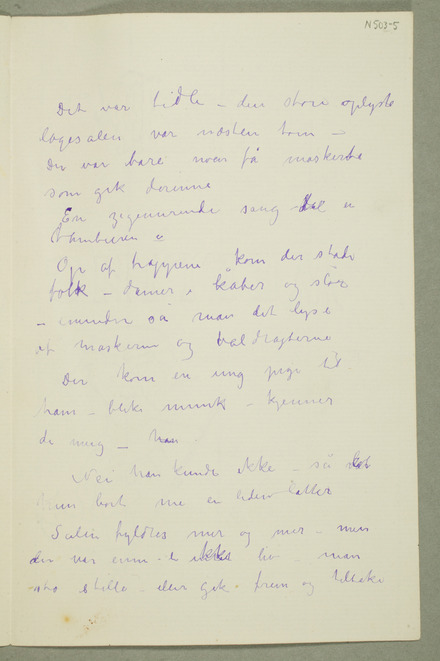 N 503-5
Det var tidli – den store oplyste
logesalen var næsten tom –
Der var bare noen få maskerte
som gik derinne
En zigeunerinde sang til en
tamburin
Op af trappene kom der stadi
folk – damer i kåber og slør
– inunder så man det lyse
af maskerne og baldragterne
Der kom en ung pige til
ham – blike munk – kjenner
du mig –
Nei han kunde ikke – så
hun bort me en liden latter
Salen fyldtes mer og mer – men
der var ennu ikke liv – man
sto stille – eller gik frem og tilbake